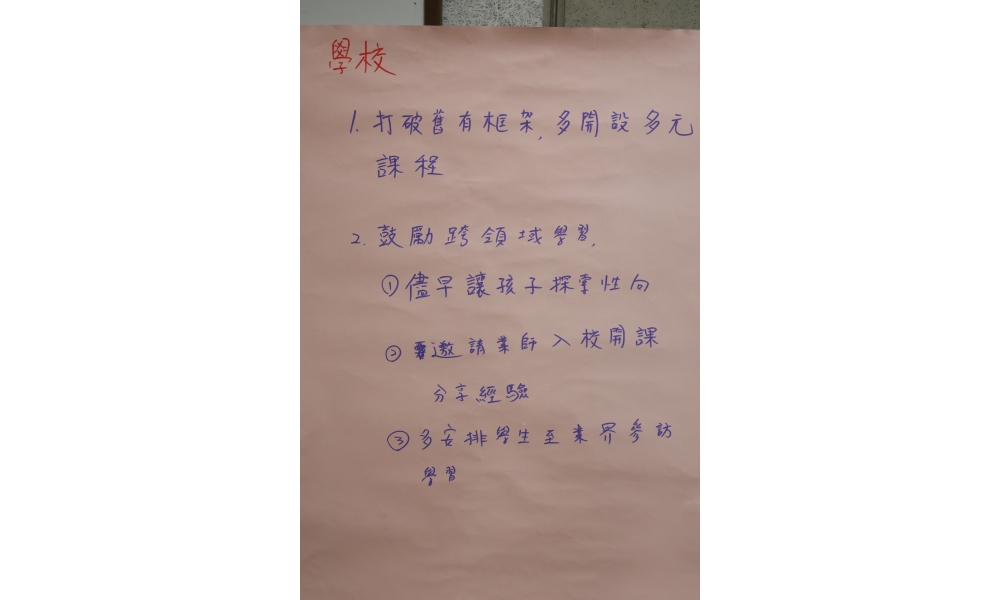 學校
1. 打破舊有框架,多開設多元
課程
2. 鼓勵跨領域學習,
① 儘早讓孩子探索性向
② 邀請業師入校開課
分享經驗
③ 多安排學生至業界參訪
學習